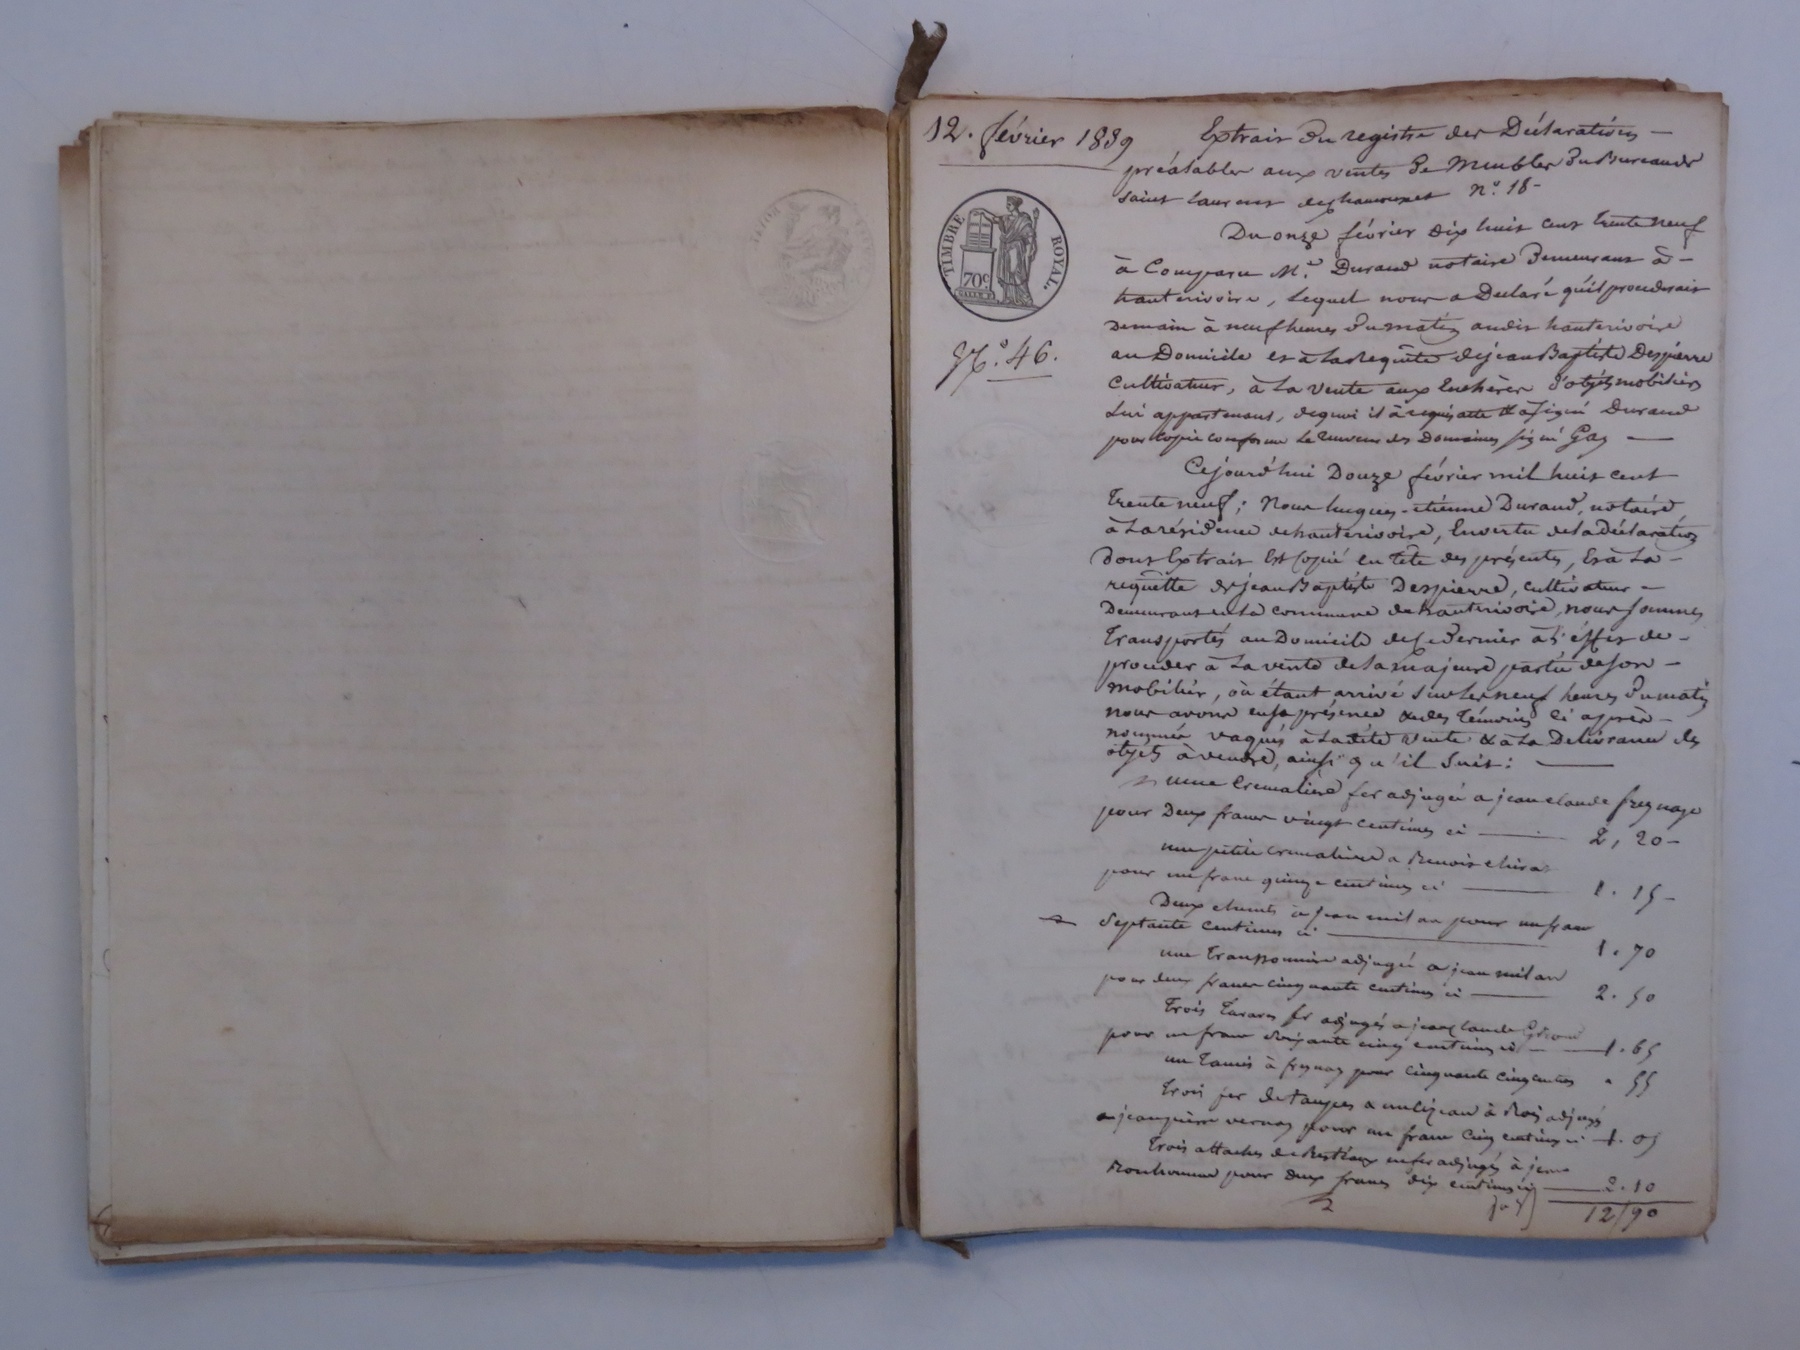 12. février 1839
TIMBRE ROYAL.
70c
N.o 46.
Extrait du registre des Déclarations
préalables aux ventes de Meubles du Bureau de
saint Laurent de chamousset N.o 18
Du onze février dix huit cent trente neuf
à Comparu M.e Durand notaire Demeurant à
hauterivoire, Lequel nous a Déclaré qu'il procéderait
Demain à neuf heures du matin audit hauterivoire
au Domicile et à la Requête de jean Baptiste Despierre
Cultivateur, à la Vente aux Enchères d'objets mobiliers
Lui appartenant, de quoi il à requis acte & a signé Durand
pour Copie conforme Le Receveur des Domaines signé Gay
Cejourd'hui Douze février mil huit cent
Trente neuf; Nous hugues-étienne Durand, notaire,
à La résidence de hauterivoire, En vertu de la Déclaration
Dont Extrait Est Copié en tête des présentes, Et à La
requête de jean Baptiste Despierre, cultivateur
Demeurant en la commune de hauterivoire, nous sommes
Transportés au Domicile de ce Dernier à l'éffet de
procéder à La vente de la majeure partie de son
mobilier, où étant arrivé sur les neuf heures du matin
nous avons en sa présence & des Témoins ci après
nommés vaqués à La dite vente & à La Délivrance des
objets à vendre, ainsi qu'il Suit:
une Cremalière fer adjugée a jean claude freynay
pour Deux francs vingt centimes ci 2, 20
une petite cremalière a Benoit
pour un franc quinze centimes ci 1. 15
Deux à jean milan pour un franc
Septante centimes ci 1. 70
une adjugée a jean milan
pour deux francs cinquante centimes ci 2. 50
Trois Tarares fer adjugés a jean Claude
pour un franc soixante cinq centimes ci 1. 65
un Tamis à freynay pour cinquante cinq centimes " 55
Trois fer de taupes a adjugés
a jean pierre vernay pour un franc cinq centimes ci 1. 05
Trois attaches de Bestiaux en fer adjugés à jean
Bonhomme pour deux francs dix centimes ci 2. 10
12/90